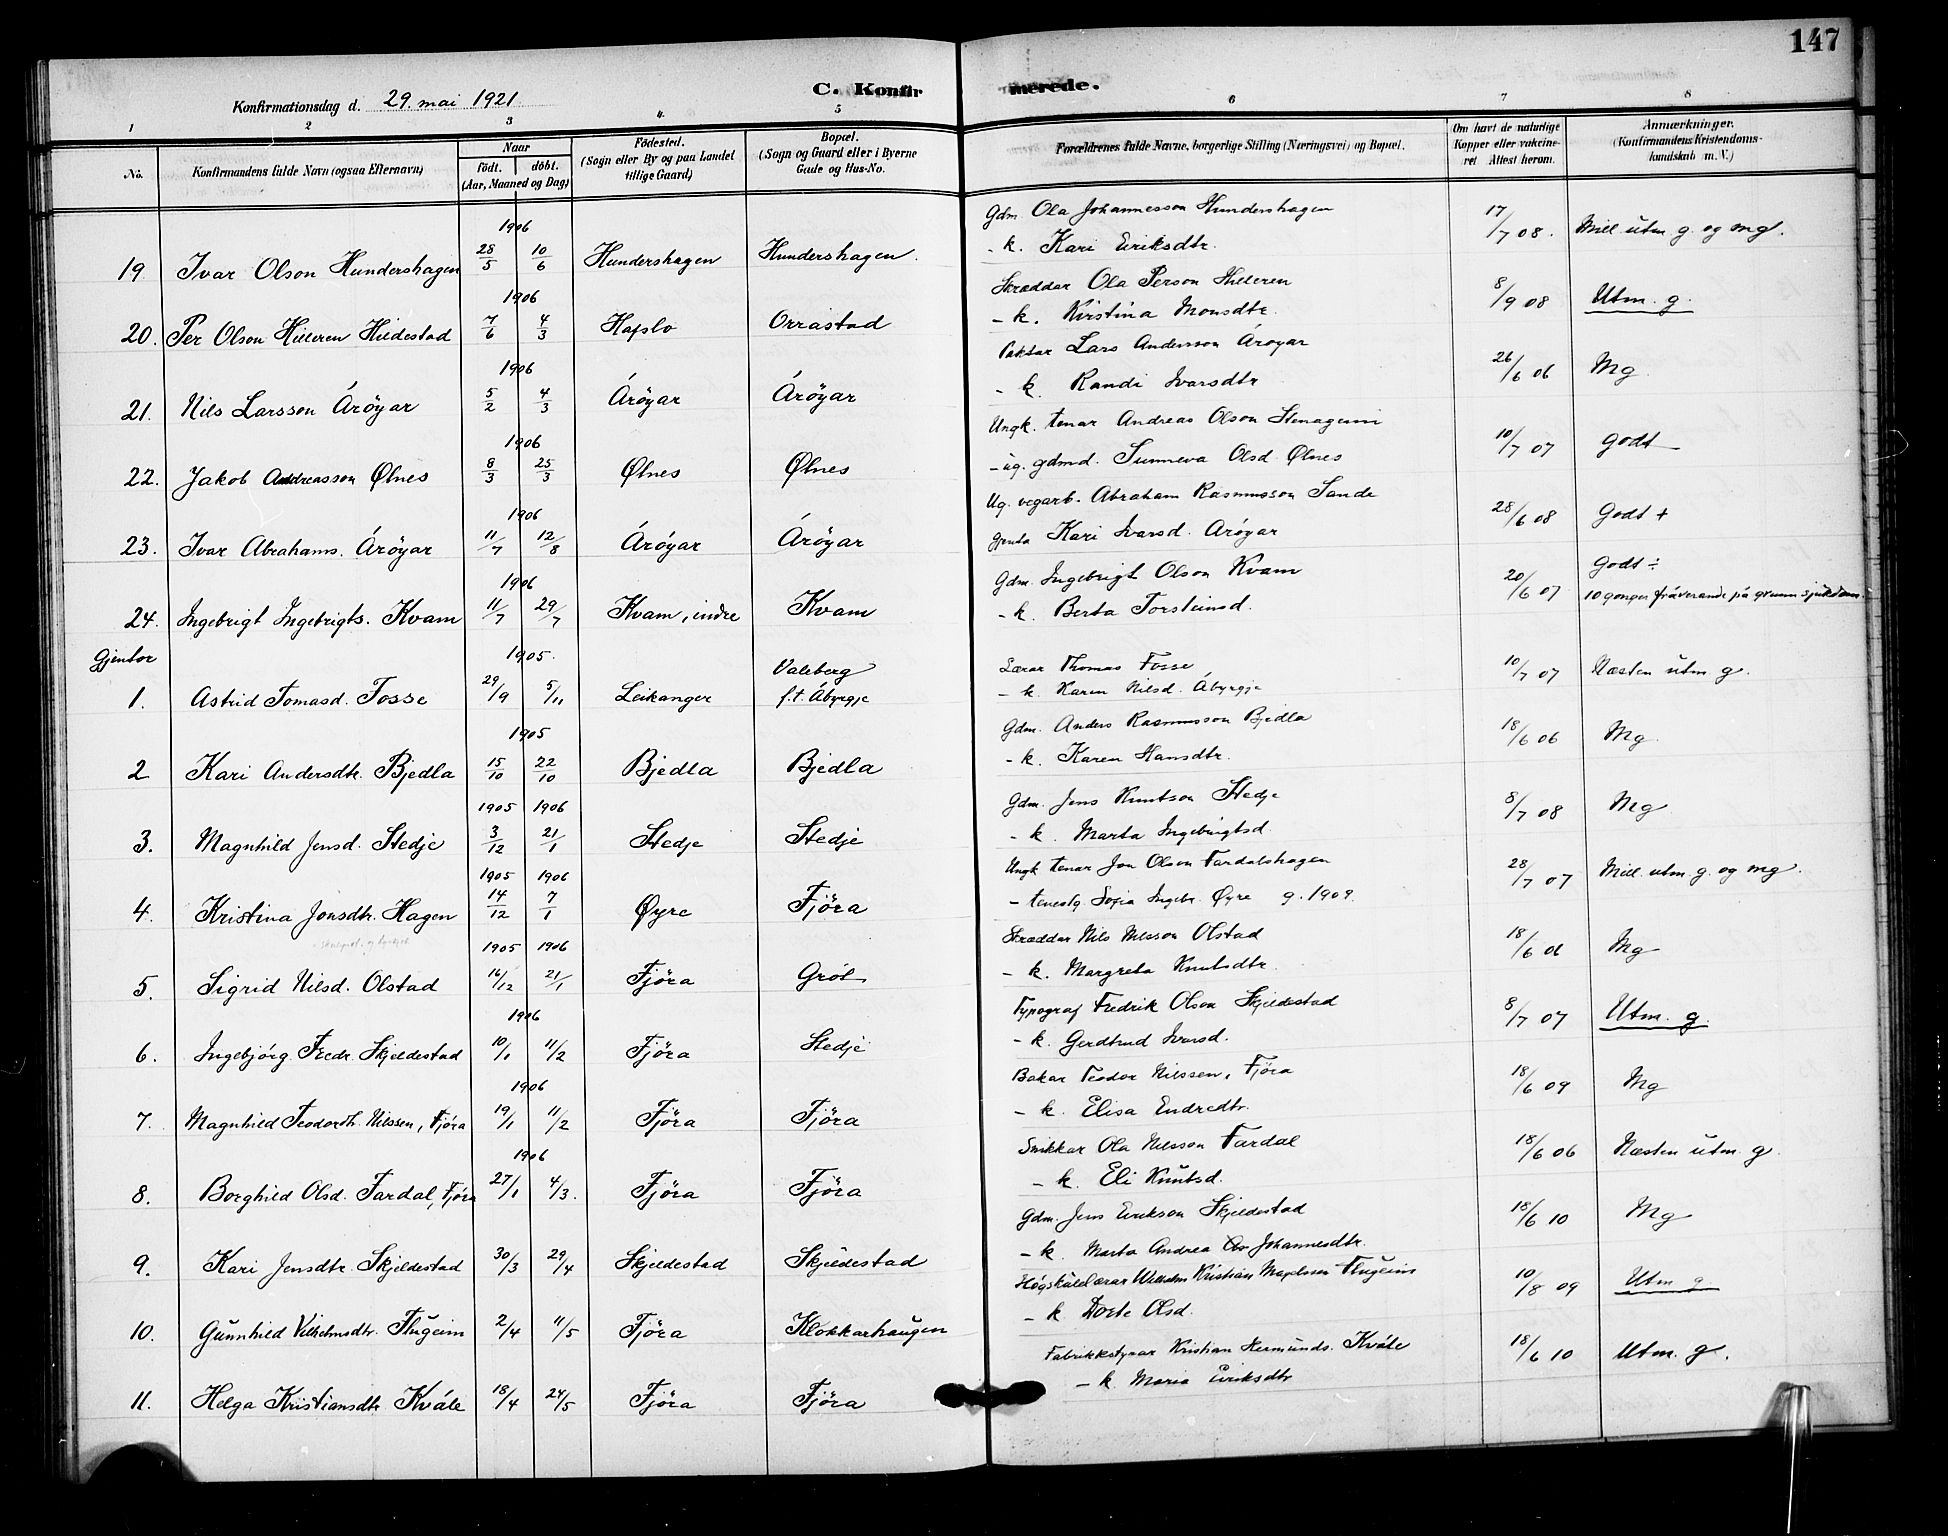 147
C. Konfirmerede.
Konfirmationsdag d. 29. mai 1921
1 2 3 4. 5 6 7 8
No. Konfirmandens fulde Navn (ogsaa Efternavn) Naar født. døbt. (Aar, Maaned og Dag) Fødested. (Sogn eller By og paa Landet tillige Gaard) Bopæl. (Sogn og Gaard eller i Byerne Gade og Hus-No. Forældrenes fulde Navne, borgerlige Stilling (Næringsvei) og Bopæl. Om havt de naturlige Kopper eller vakcineret Attest herom. Anmærkninger. (Konfirmandens Kristendomskundskab m. V.)
1906 Gdm Ola Johannesson Hundershagen
19. Ivar Olson Hundershagen 28/5 10/6 Hundershagen Hundershagen. - k. Kari Eiriksdtr. 17/7 08. Mill utm. g. og mg.
1906 Skræddar Ola Person Hilleren
20. Per Olson Hilleren Hildestad 7/6 4/3 Hafslo Orrastad - k. Kirstina Monsdtr. 8/9 08 Utm. g.
1906 Paktar Lars Andersson Árøyar
21. Nils Larsson Árøyar 5/2 4/3 Árøyar Árøyar - k. Randi Ivarsdtr 26/6 06 Mg
1906 Ungk. tenar Andreas Olson Stenageimi
22. Jakob Andreasson Ølnes 8/3 25/3 Ølnes Ølnes - ug. gdmd. Sunneva Olsd Ølnes 10/7 07 Godt
1906 Ug. vegarb. Abraham Rasmusson Sande
23. Ivar Abrahams. Árøyar 11/7 12/8 Árøyar Árøyar gjenta Kari Ivarsd. Árøyar 28/6 08 Godt +
1906 Gdm. Ingebrigt Olson Kvam Godt ÷
24. Ingebrigt Ingebrigts. Kvam 11/7 29/7 Kvam, indre Kvam - k. Berta Torsteinsd. 20/6 07 10 gonger fráverande på grunn sjukdom.
Gjentor 1905. Valeberg Lærar Thomas Fosse
1. Astrid Tomasd. Fosse 29/9 5/11 Leikanger f.t. Ábyrgje - k. Karen Nilsd. Ábyrgje 10/7 07 Næsten utm. g.
1905 Gdm. Anders Rasmusson Bjedla
2 Kari Andersdtr. Bjedla 15/10 22/10 Bjedla Bjedla - k. Karen Hansdtr. 18/6 06 Mg.
1905 1906 Gdm. Jens Knutson Stedje
3. Magnhild Jensd. Stedje 3/12 21/1 Stedje Stedje - k. Marta Ingebrigtsd. 8/7 08 Mg
1905 1906 Ungk tenar Jon Olson Fardalshagen
4. Kristina Jonsdtr. Hagen 14/12 7/1 Øyre Fjøra - tenestg Sofia Ingebr. Øyre g. 1909. 28/7 07 Mill. utm g. og mg.
1905 1906 Skræddar Nils Nilsson Olstad
5. Sigrid Nilsd. Olstad 16/12 21/1 Fjøra Grøt - k. Margreta Knutsdtr. 18/6 06 Mg
1906 Typograf Fredrik Olson Skjeldestad
6. Ingebjørg Fredr. Skjeldestad 10/1 11/2 Fjøra Stedje - k. Gerdtrud Ivarsd. 8/7 07 Utm. g.
1906 Bakar Teodor Nilssen, Fjøra
7. Magnhild Teodordt. Nilssen, Fjøra 19/1 11/2 Fjøra Fjøra - k. Elisa Endredtr. 18/6 09 Mg
1906 Snikkar Ola Nilsson Fardal
8. Borghild Olsd. Fardal, Fjøra 27/1 4/3. Fjøra Fjøra - k. Eli Knutsd. 18/6 06 Næsten utm. g.
Gdm. Jens Eirikson Skjeldestad
9. Kari Jensdtr. Skjeldestad 30/3 29/4 Skjeldestad Skjeldestad - k. Marta Andrea Johannesdtr. 18/6 10 Mg
Høgskulelærar Wilhelm Kristian Flugeim
10. Gunnhild Vilhelmsdtr. Flugeim 2/4 11/5 Fjøra Klokkarhaugen - k Dorte Olsd. 10/8 09 Utm g.
Fabrikkstyrar Kristian Hermunds. Kvåle
11. Helga Kristiansdtr Kvåle 18/4 24/5 Fjøra Fjøra - k. Maria Eiriksdtr 18/6 10 Utm. g.